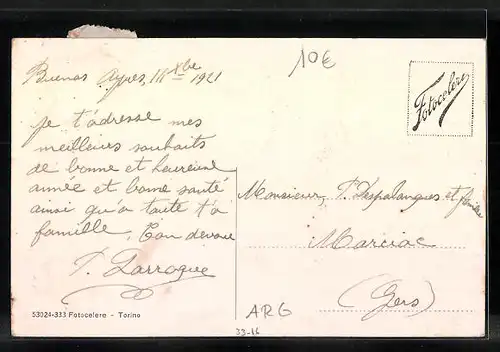 Buenos Ayres, 14 Xbre 1921
10€
Fotocelere
Je t'adresse mes
meilleurs souhaits
de bonne et heureuse
année et bonne santé
ainsi qu'à toute ta
famille. Ton
P. Larroque
Monsieur, P. et famille
Marciac
(Gers)
53024-333 Fotocelere - Torino
ARG
33-16